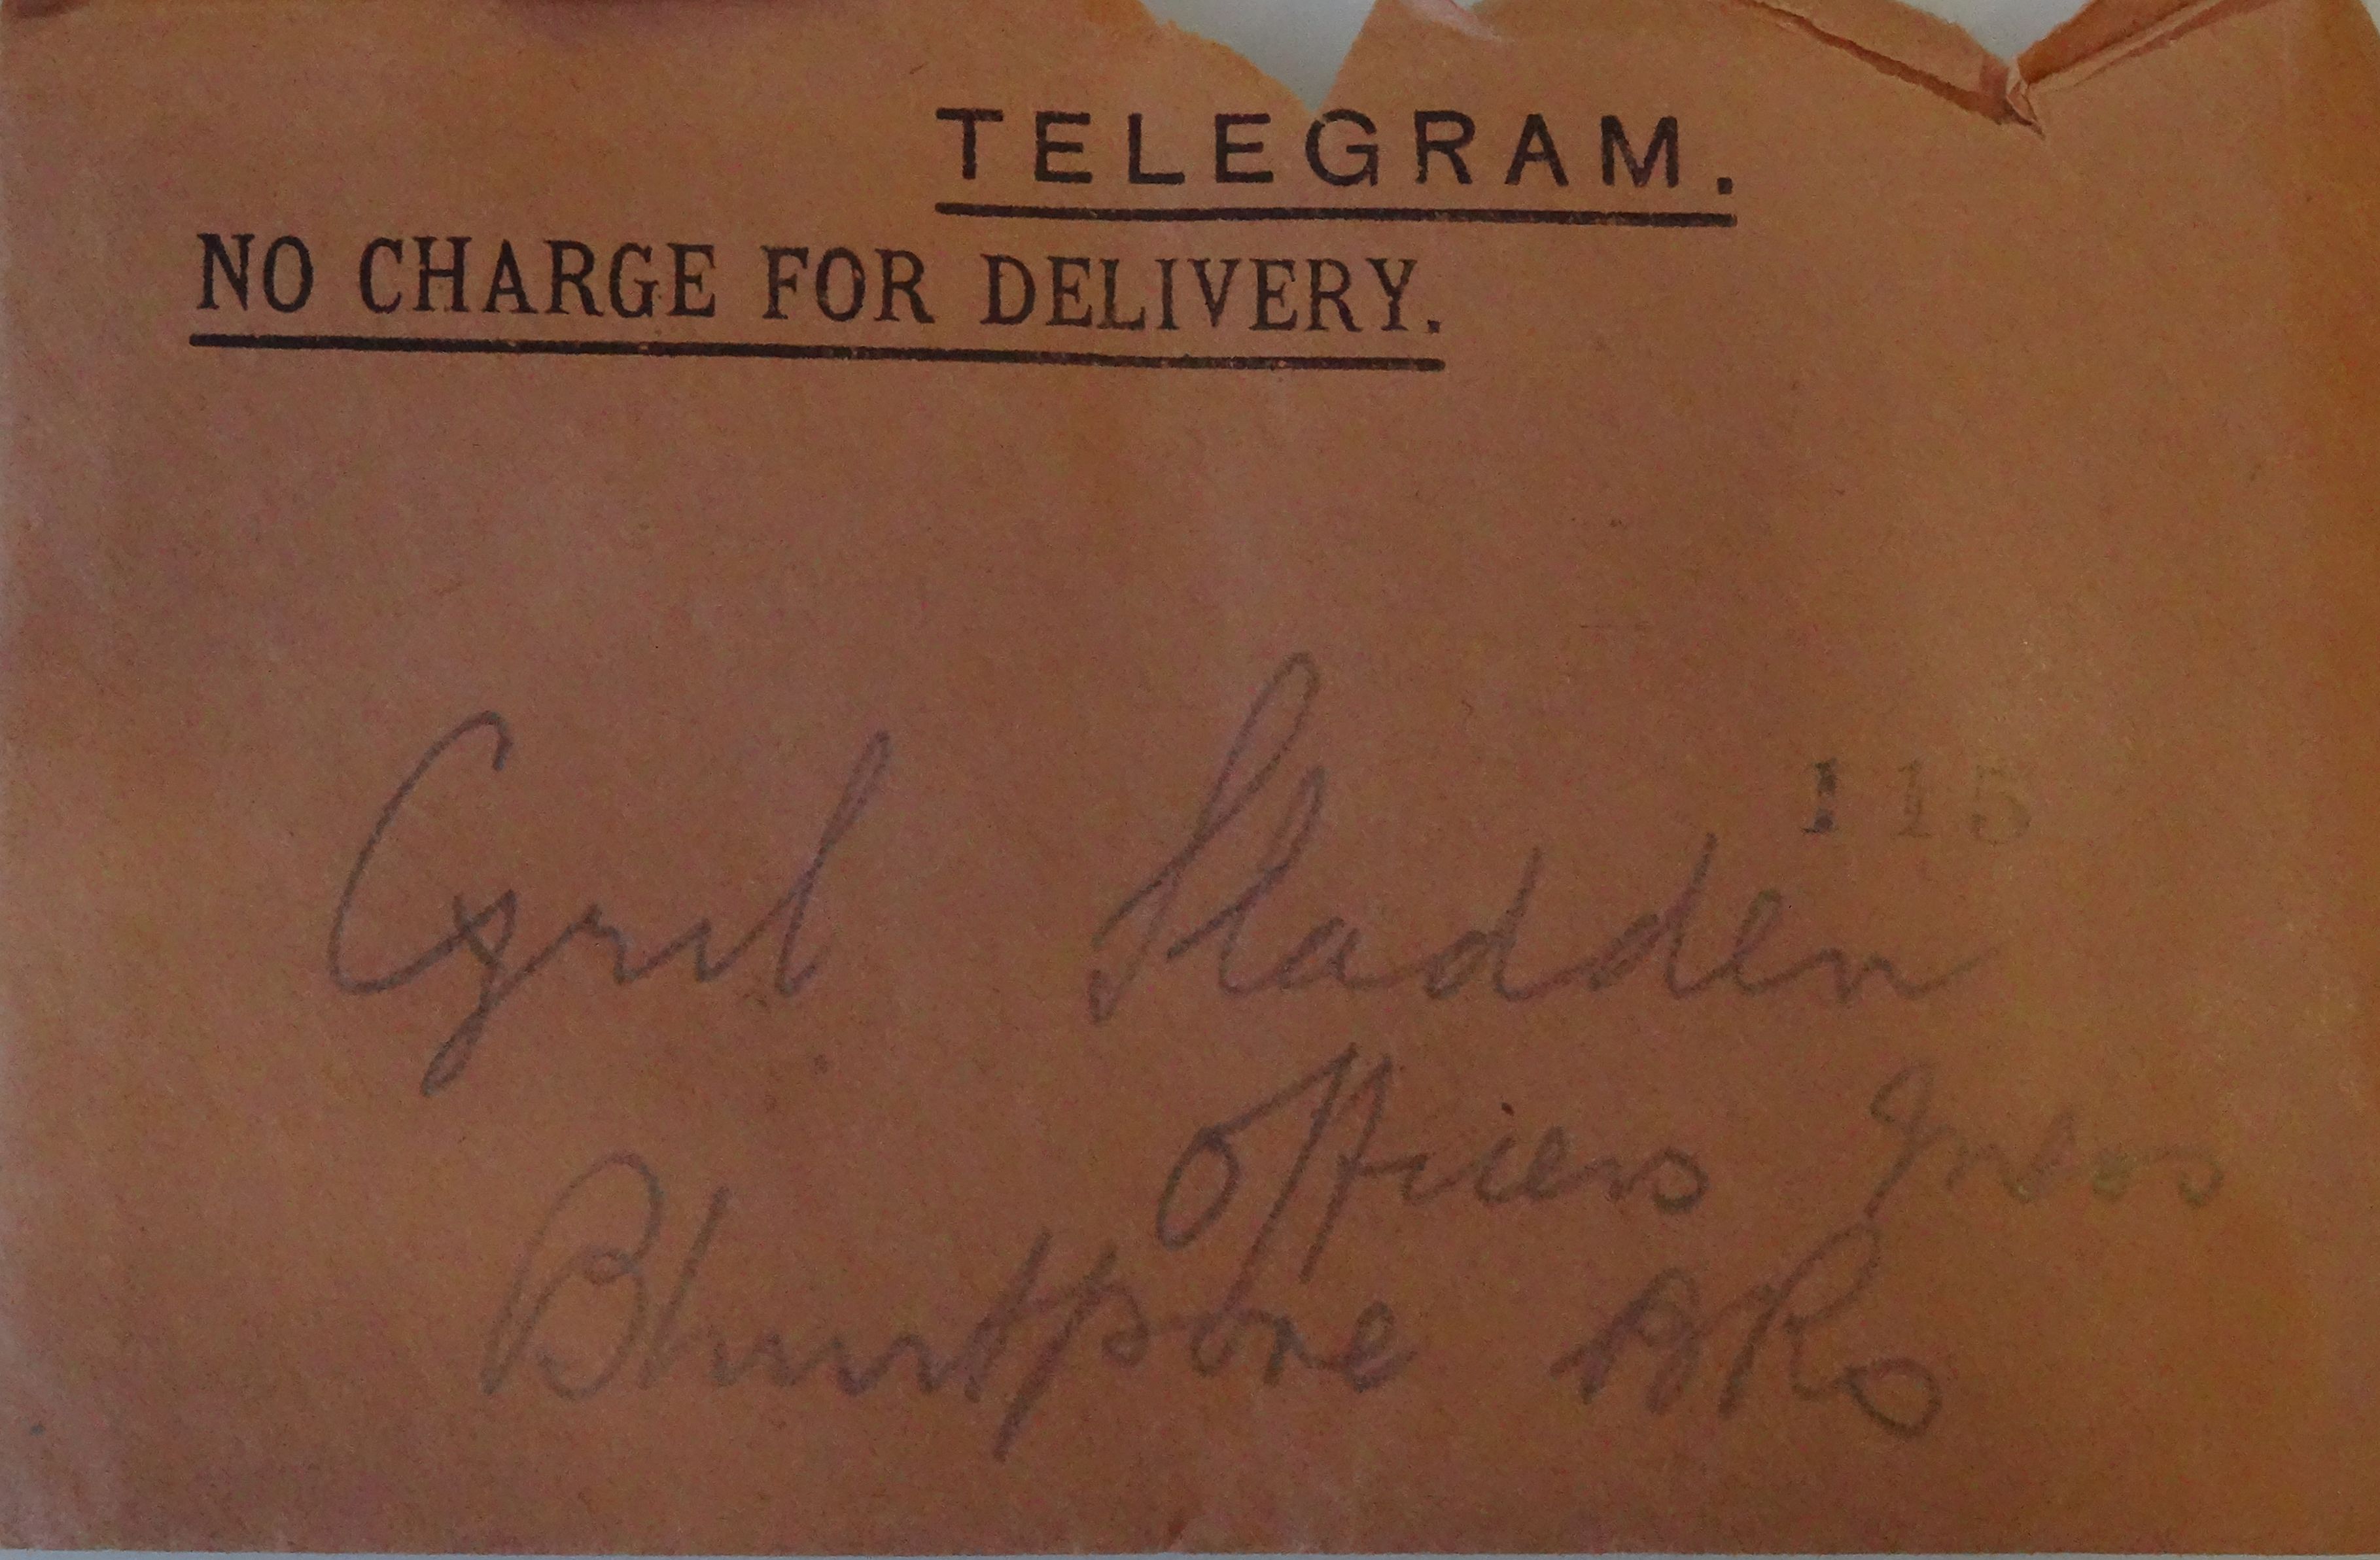 TELEGRAM.
NO CHARGE FOR DELIVERY.
115
Cyril Sladden
Officers Mess
Bhurtpore